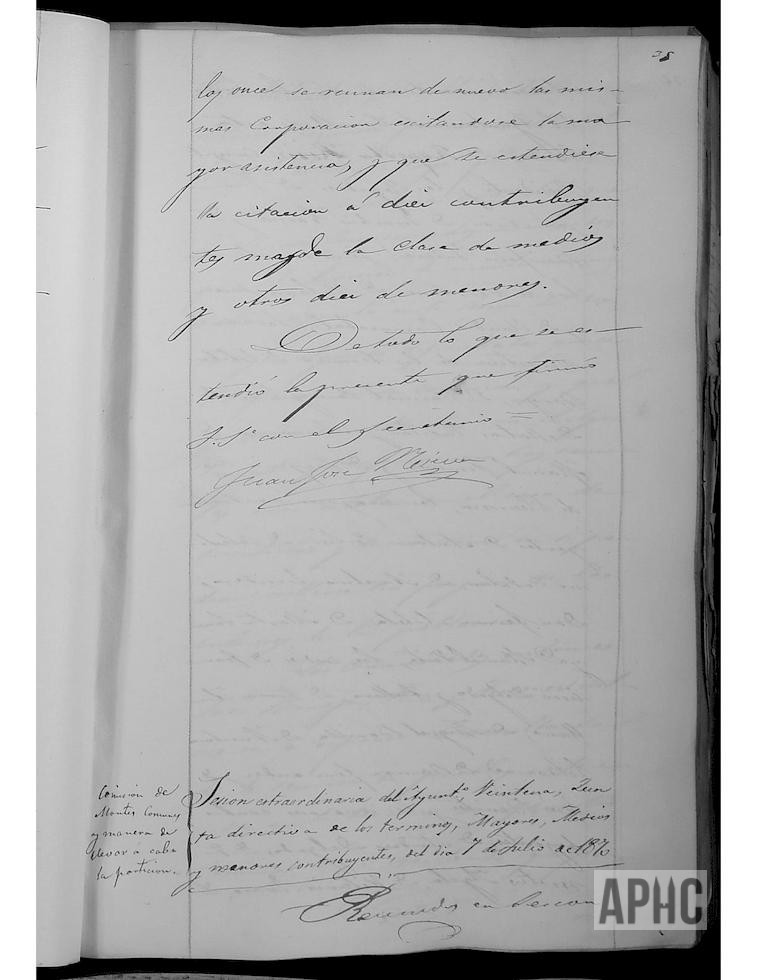 38
los once se reunan de nuevo las mis-
mas Corporacion escitandose la ma
yor asistencia, y que se estendiese
la citacion á diez contribuyen
tes mas de la clase de medios
y otros diez de menores.
De todo lo que se es-
tendió la presente que firmó
S. Sª con el Secretario =
Juan José
Comisión de
Montes Comunes
y manera de
llevar a cabo
la particion.
Sesion extraordinaria del Ayuntº, Veintena, Jun
ta directiva de los terminos, Mayores, Medios
y menores contribuyentes, del dia 7 de Julio de 1870
Reunidos en Sesion
APHC